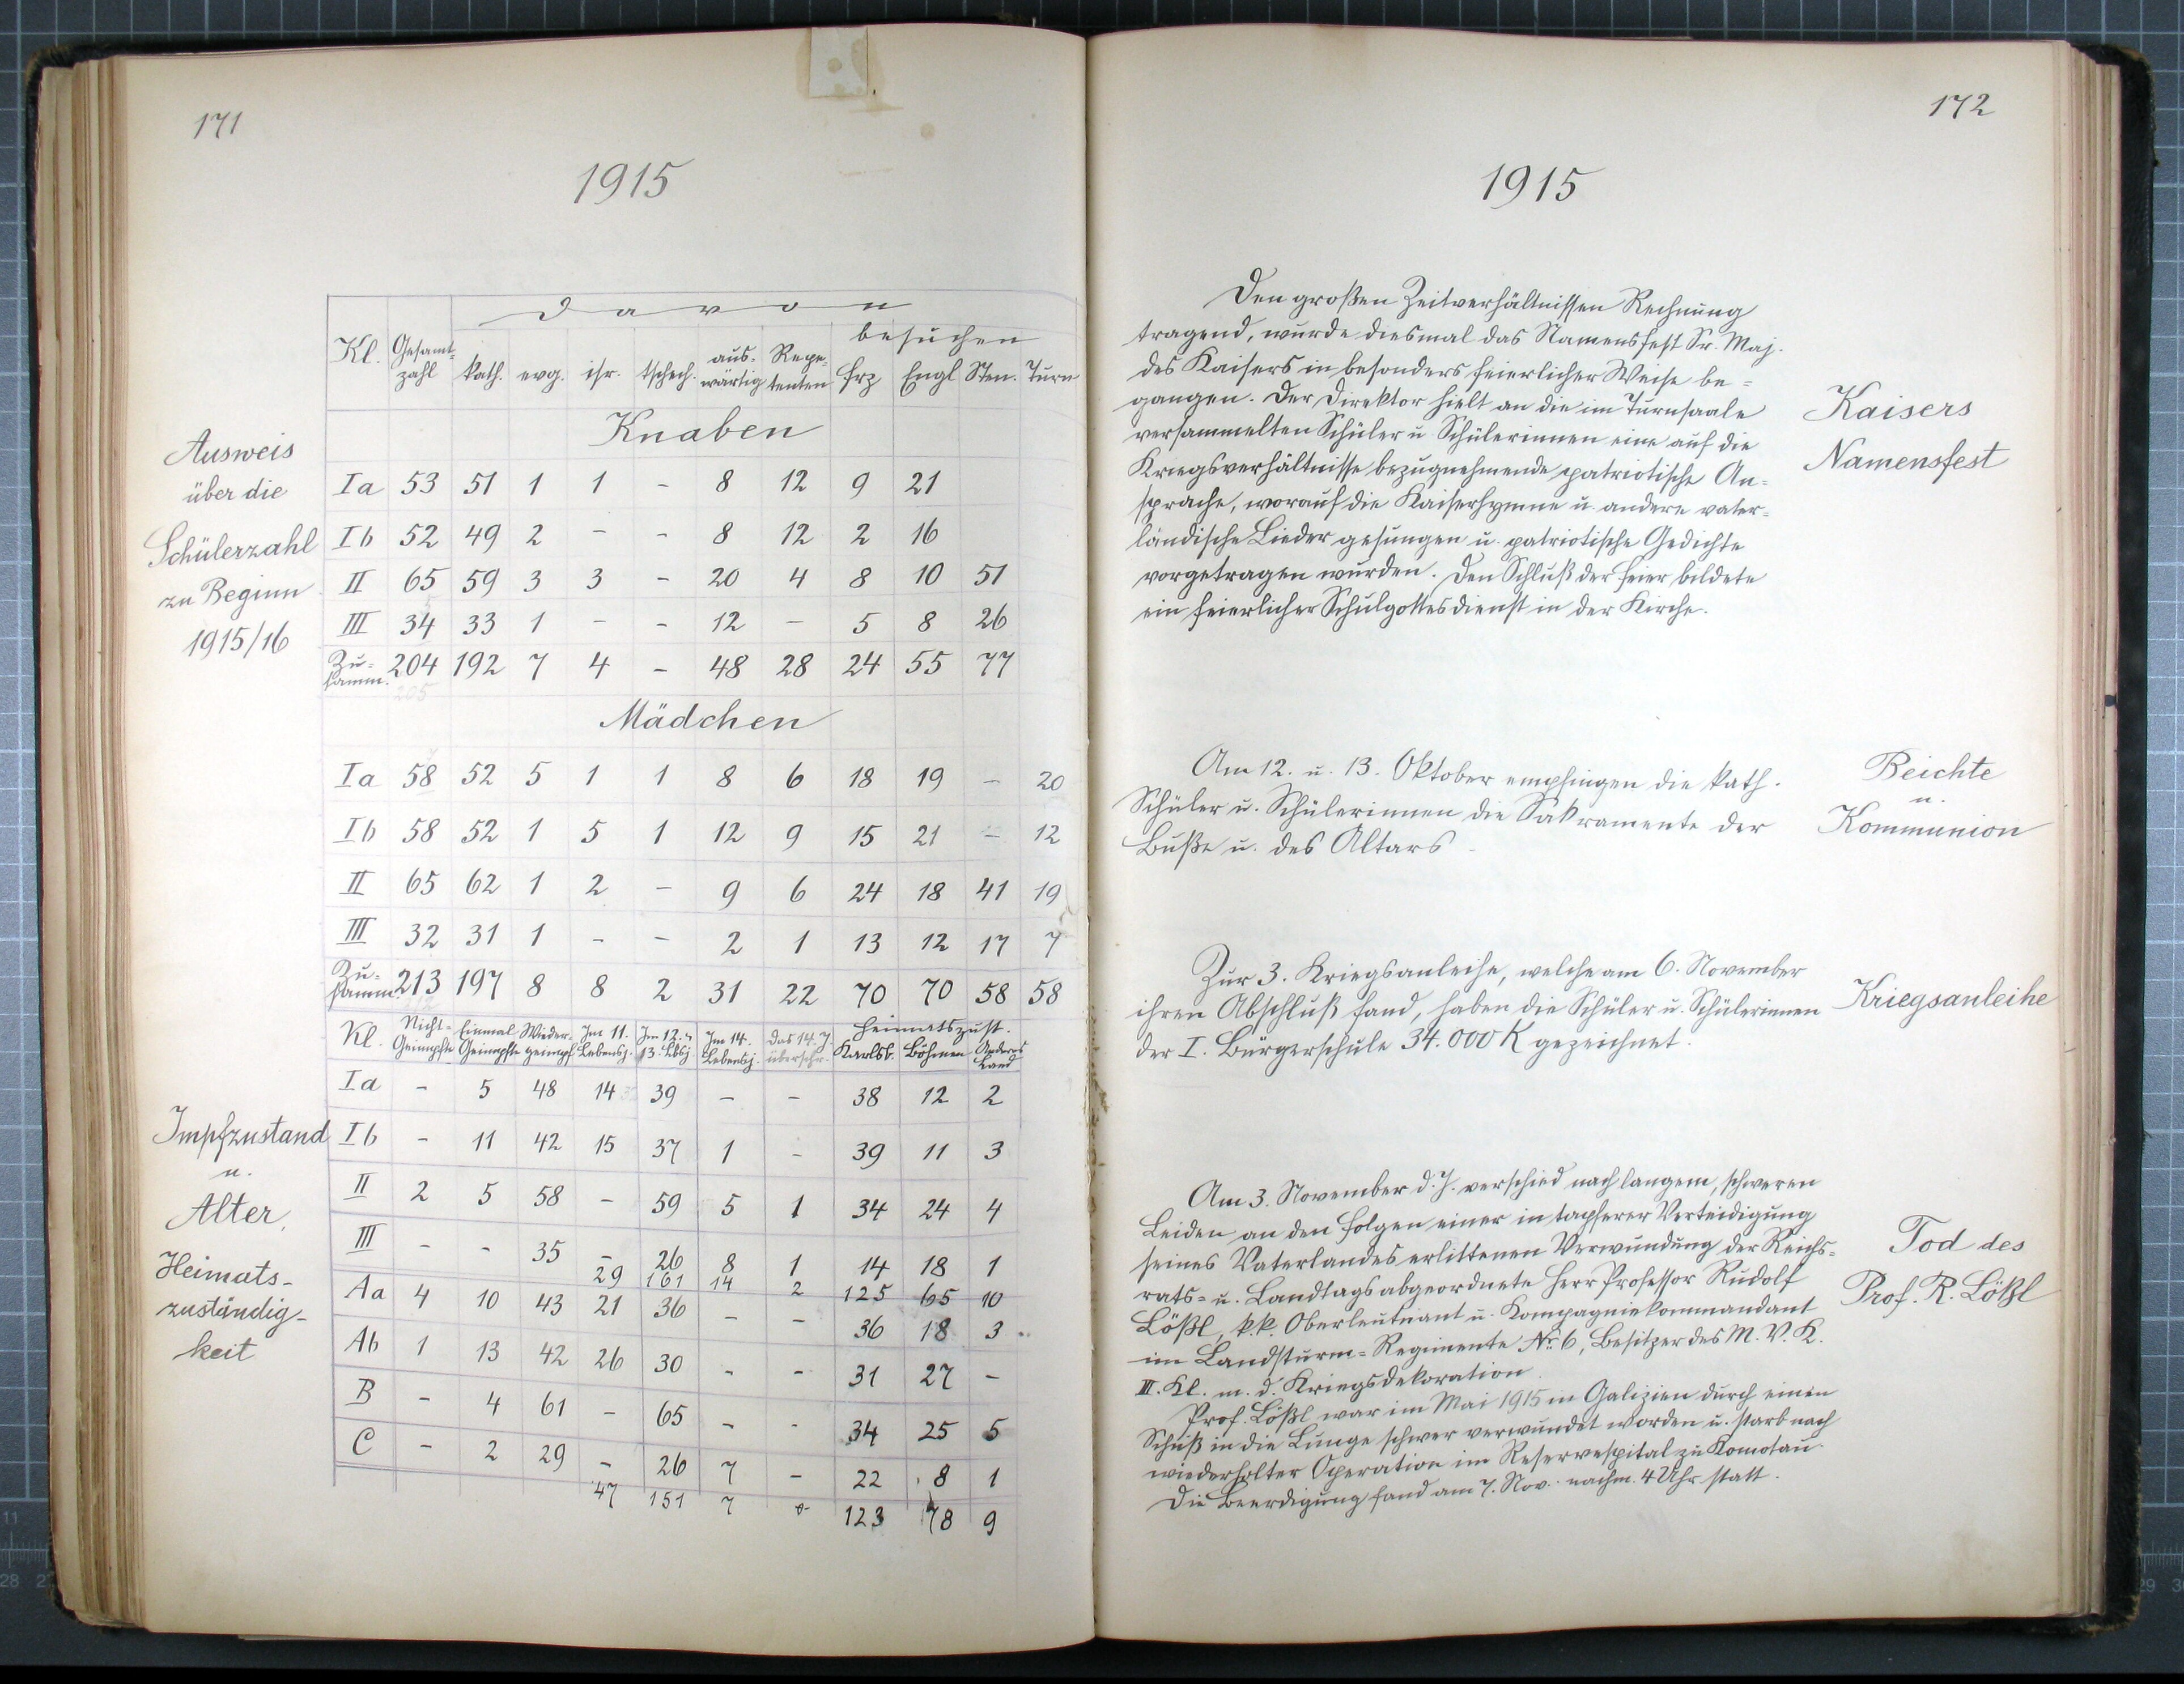 171
1915
Ausweis
über die
Schülerzahl
zu Beginn
1915/16
davon
besuchen
Kl. Gesamt-zahl kath. evg. isr. tschech. aus-wärtig Repe-tenten frz Engl Sten. Turn
Knaben
Ia 53 51 1 1 - 8 12 9 21
Ib 52 49 2 - - 8 12 2 16
II 65 59 3 3 - 20 4 8 10 51
III 34 33 1 - - 12 - 5 8 26
Zu-samm. 204 192 7 4 - 48 28 24 55 77
205
Mädchen
Ia 58 52 5 1 1 8 6 18 19 - 20
Ib 58 52 1 5 1 12 9 15 21 - 12
II 65 62 1 2 - 9 6 24 18 41 19
III 32 31 1 - - 2 1 13 12 17 7
Zu-samm. 213 197 8 8 2 31 22 70 70 58 58
Impfzustand
u.
Alter,
Heimats-
zuständig-
keit
Heimatszust.
Kl. Nicht-Geimpfte Einmal Geimpfte Wieder-geimpf. Im 11. Lebensj. Im 12. u. 13. Lbsj. Im 14. Lebensj. Das 14. J. überschr. Karlsb. Böhmen Anderes Land
Ia - 5 48 14 39 - - 38 12 2
Ib - 11 42 15 37 1 - 39 11 3
II 2 5 58 - 59 5 1 34 24 4
III - - 35 - 26 8 1 14 18 1
29 161 14 2 125 65 10
Aa 4 10 43 21 36 - - 36 18 3
Ab 1 13 42 26 30 - - 31 27 -
B - 4 61 - 65 - - 34 25 5
C - 2 29 - 26 7 - 22 8 1
47 151 7 0 123 78 9
172
1915
Den großen Zeitverhältnissen Rechnung
tragend, wurde diesmal das Namensfest Sr. Maj.
des Kaisers in besonders feierlicher Weise be-
gangen. Der Direktor hielt an die im Turnsaale
versammelten Schüler u Schülerinnen eine auf die
Kriegsverhältnisse bezugnehmende patriotische An-
sprache, worauf die Kaiserhymne u. andere vater-
ländische Lieder gesungen u. patriotische Gedichte
vorgetragen wurden. Den Schluß der Feier bildete
ein feierlicher Schulgottesdienst in der Kirche.
Kaisers
Namensfest
Am 12. u. 13. Oktober empfingen die kath.
Schüler u. Schülerinnen die Sakramente der
Buße u. des Altars.
Beichte
u.
Kommunion
Zur 3. Kriegsanleihe, welche am 6. November
ihren Abschluß fand, haben die Schüler u. Schülerinnen
der I. Bürgerschule 34.000 K gezeichnet.
Kriegsanleihe
Am 3. November d. J. verschied nach langem, schweren
Leiden an den Folgen einer in tapferer Verteidigung
seines Vaterlandes erlittenen Verwundung der Reichs-
rats- u. Landtagsabgeordnete Herr Professor Rudolf
Lößl, k.k. Oberleutnant u. Kompagniekommandant
im Landsturm-Regimente Nr. 6, Besitzer des M. V. K.
III. Kl. m. d. Kriegsdekoration.
Prof. Lößl war im Mai 1915 in Galizien durch einen
Schuß in die Lunge schwer verwundet worden u. starb nach
wiederholter Operation im Reservespital zu Komotau.
Die Beerdigung fand am 7. Nov. nachm. 4 Uhr statt.
Tod des
Prof. R. Lößl